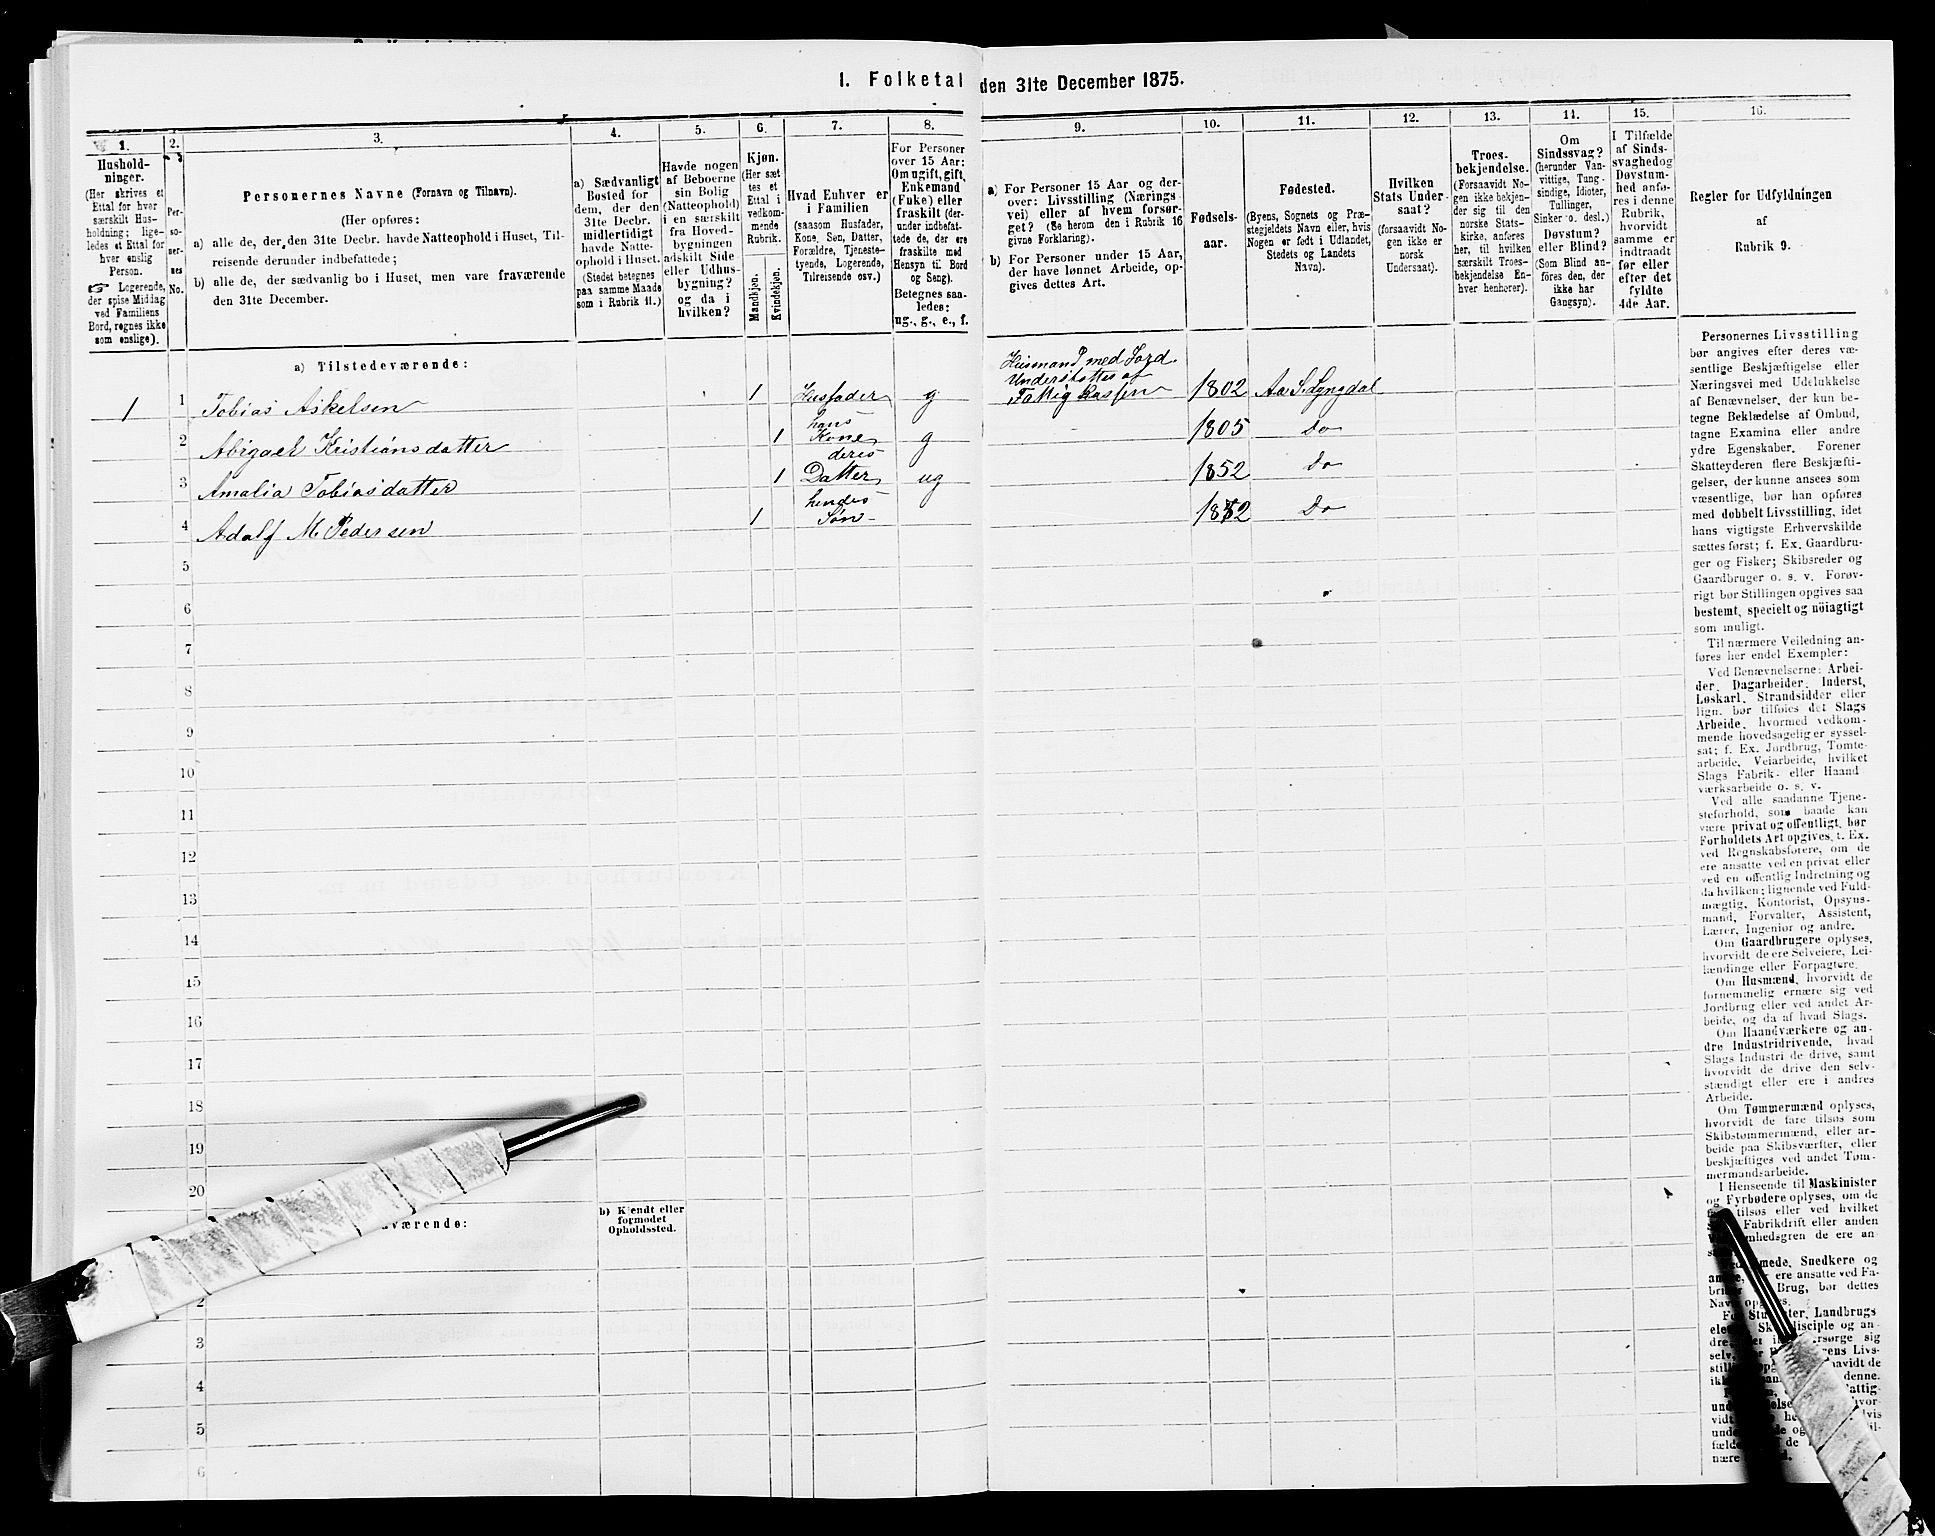 1. Folketal den 31te December 1875.
1.
2.
3.
4.
5.
6.
7.
8.
9.
10.
11.
12.
13.
14.
15.
16.
Hushold-
ninger.
(Her skrives et
Ettal for hver
særskilt Hus-
holdning; lige-
ledes et Ettal for
hver enslig
Person.
☞ Logerende,
der spise Middag
ved Familiens
Bord, regnes ikke
som enslige).
Per-
so-
ner-
nes
No.
Personernes Navne (Fornavn og Tilnavn).
(Her opføres:
a) alle de, der den 31te Decbr. havde Natteophold i Huset, Til-
reisende derunder indbefattede;
b) alle de, der sædvanlig bo i Huset, men vare fraværende
den 31te December.
a) Sædvanligt
Bosted for
dem, der den
31te Decbr.
midlertidigt
havde Natte-
ophold i Huset.
(Stedet betegnes
paa samme Maade
som i Rubrik 11.)
Havde nogen
af Beboerne
sin Bolig
(Natteophold)
i en særskilt
fra Hoved-
bygningen
adskilt Side
eller Udhus-
bygning?
og da i
hvilken?
Kjøn.
(Her sæt-
tes et
Ettal i
vedkom-
mende
Rubrik.
Mandkjøn.
Kvindekjøn.
Hvad Enhver er
i Familien
(saasom Husfader,
Kone, Søn, Datter,
Forældre, Tjeneste-
tyende, Logerende,
Tilreisende osv.)
For Personer
over 15 Aar:
Om ugift, gift,
Enkemand
(Enke) eller
fraskilt (der-
under indbefat-
tede de, der ere
fraskilte med
Hensyn til Bord
og Seng).
Betegnes saa-
ledes:
ug., g., e., f.
a) For Personer 15 Aar og der-
over: Livsstilling (Nærings-
vei) eller af hvem forsør-
get? (Se herom den i Rubrik 16
givne Forklaring).
b) For Personer under 15 Aar,
der have lønnet Arbeide, op-
gives dettes Art.
Fødsels-
aar.
Fødested.
(Byens, Sognets og Præ-
stegjeldets Navn eller, hvis
Nogen er født i Udlandet,
Stedets og Landets
Navn).
Hvilken
Stats Under-
saat?
(forsaavidt No-
gen ikke er
norsk
Undersaat).
Troes-
bekjendelse.
(Forsaavidt No-
gen ikke bekjen-
der sig til den
norske Stats-
kirke, anføres
her, til hvilken
særskilt Troes-
bekjendelse En-
hver henhører).
Om
Sindssvag?
(herunder Van-
vittige, Tung-
sindige, Idioter,
Tullinger,
Sinker o. desl.)
Døvstum?
eller Blind?
(Som Blind an-
føres den, der
ikke har
Gangsyn).
I Tilfælde
af Sinds-
svaghed og
Døvstum-
hed anfø-
res i denne
Rubrik,
hvorvidt
samme er
indtraadt
før eller
efter det
fyldte
4de Aar.
Regler for Udfyldningen
af
Rubrik 9.
a) Tilstedeværende:
Husmand med Jord
Understøttes af
1 1 Tobias Askelsen 1 Husfader g Fattig Kassen 1802 Aa S. Lyngdal
hans
2 Abigael Kristiansdatter 1 Kone g 1805 Do
deres
3 Amalia Tobiasdatter 1 Datter ug 1852 Do
hendes
4 Adolf M. Pedersen 1 Søn 1872 Do
5
6
7
8
9
10
11
12
13
14
15
16
17
18
19
20
værende:
b) Kjendt eller
formodet
Opholdssted.
2
3
4
5
6
Personernes Livsstilling
bør angives efter deres væ-
sentlige Beskjæftigelse eller
Næringsvei med Udelukkelse
af Benævnelser, der kun be-
tegne Beklædelse af Ombud,
tagne Examina eller andre
ydre Egenskaber. Forener
Skatteyderen flere Beskjæfti-
gelser, der kunne ansees som
væsentlige, bør han opføres
med dobbelt Livsstilling, idet
hans vigtigste Erhvervskilde
sættes først; f. Ex. Gaardbru-
ger og Fisker; Skibsreder og
Gaardbruger o. s. v. Forøv-
rigt bør Stillingen opgives saa
bestemt, specielt og nöiagtigt
som muligt.
Til nærmere Veiledning an-
føres her endel Exempler:
Ved Benævnelserne: Arbei-
der, Dagarbeider, Inderst,
Løskarl, Strandsidder eller
lign. bør tilføies det Slags
Arbeide, hvormed vedkom-
mende hovedsagelig er syssel-
sat; f. Ex. Jordbrug, Tomte-
arbeide, Veiarbeide, hvilket
Slags Fabrik- eller Haand
værksarbeide o. s. v.
Ved alle saadanne Tjene-
steforhold, som baade kan
være privat og offentligt, bør
Forholdets Art opgives, t. Ex.
ved Regnskabsførere, om de
ere ansatte ved en privat eller
ved en offentlig Indretning og
da hvilken; lignende ved Fuld-
mægtig, Kontorist, Opsyns-
mand, Forvalter, Assistent,
Lærer, Ingeniør og andre.
Om Gaardbrugere oplyses,
hvorvidt de ere Selveiere, Lei-
lændinge eller Forpagtere.
Om Husmænd, hvorvidt de
fornemmelig ernære sig ved
Jordbrug eller ved andet Ar-
beide, og da af hvad Slags.
Om Haandværkere og an-
dre Industridrivende, hvad
Slags Industri de drive, samt
hvorvidt de drive den selv-
stændigt eller ere i andres
Arbeide.
Om Tømmermænd oplyses,
hvorvidt de fare tilsøs som
Skibstømmermænd, eller ar-
beide paa Skibsværfter, eller
beskjæftiges ved andet Tøm-
mermandsarbeide.
I Henseende til Maskinister
og Fyrbødere oplyses, om de
tilsøs eller ved hvilket
Fabrikdrift eller anden
mhedsgren de ere an-
mede, Snedkere og
ere ansatte ved Fa-
Brug, bør dettes
Navn
Landbrugs
disciple og an-
rsørge sig
rens Livs-
avidt de
denne.
attig-